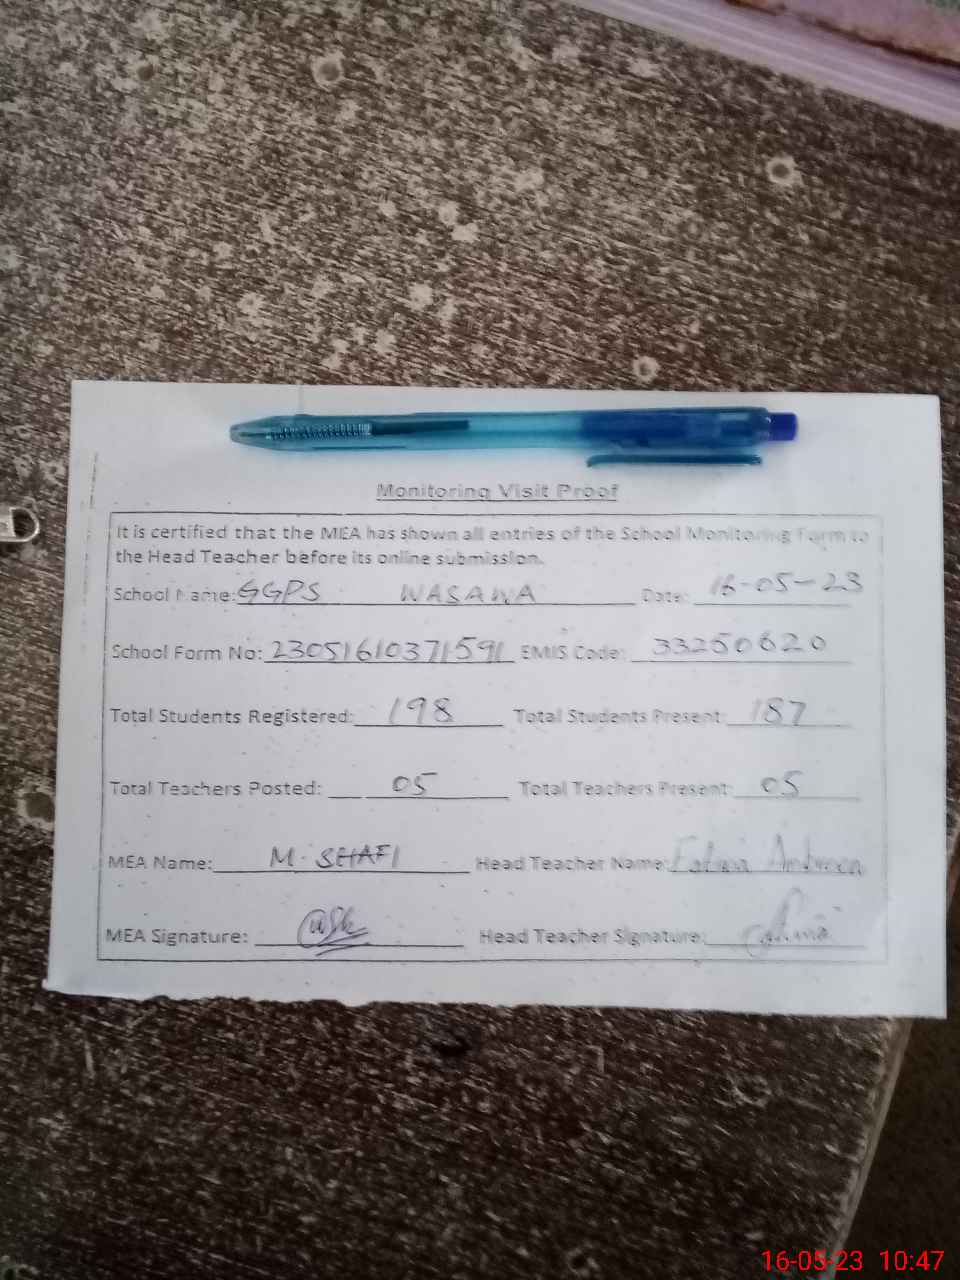 Monitoring Visit Proof
It is certified that the MEA has shown all entries of the School Monitoring Form to
the Head Teacher before its online submission.
School Name: GGPS WASAWA Date: 16-05-23
School Form No: 23051610371591 EMIS Code: 33250620
Total Students Registered: 198 Total Students Present: 187
Total Teachers Posted: 05 Total Teachers Present: 05
MEA Name: M. SHAFI Head Teacher Name: Fatima
MEA Signature: Head Teacher Signature:
16-05-23 10:47